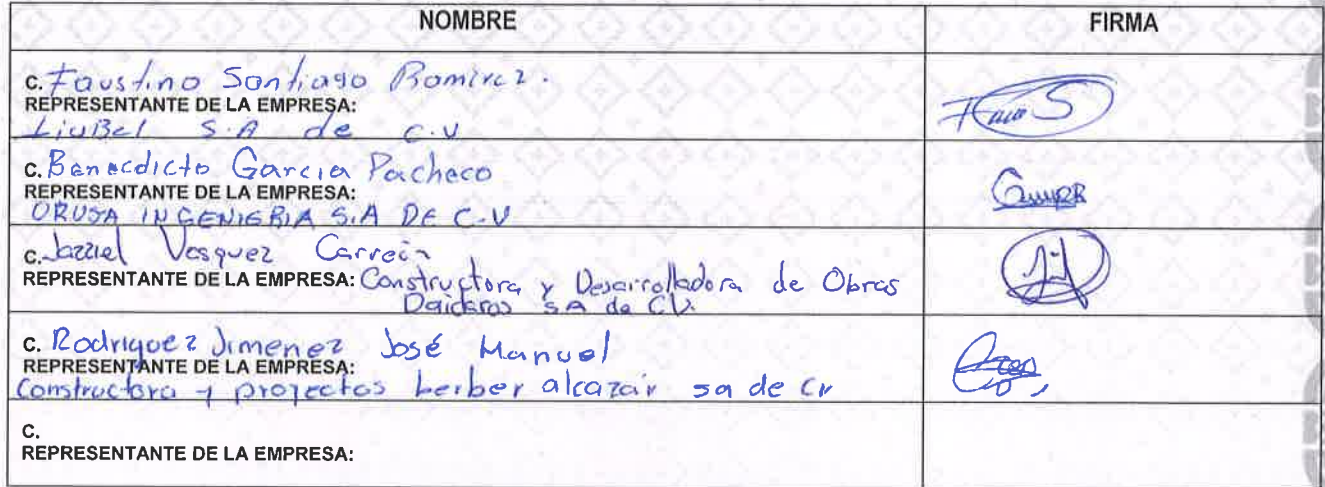 NOMBRE FIRMA
C. Faustino Santiago Ramirez.
REPRESENTANTE DE LA EMPRESA:
LiuBel S.A de C.V
C. Benedicto Garcia Pacheco
REPRESENTANTE DE LA EMPRESA:
ORUSA INGENIERIA S.A DE C.V
C. Jazziel Vasquez Carreón
REPRESENTANTE DE LA EMPRESA: Constructora y Desarrolladora de Obras
SA de CV.
C. Rodriguez Jimenez José Manuel
REPRESENTANTE DE LA EMPRESA:
Constructora y proyectos berber alcazar sa de cv
C.
REPRESENTANTE DE LA EMPRESA: